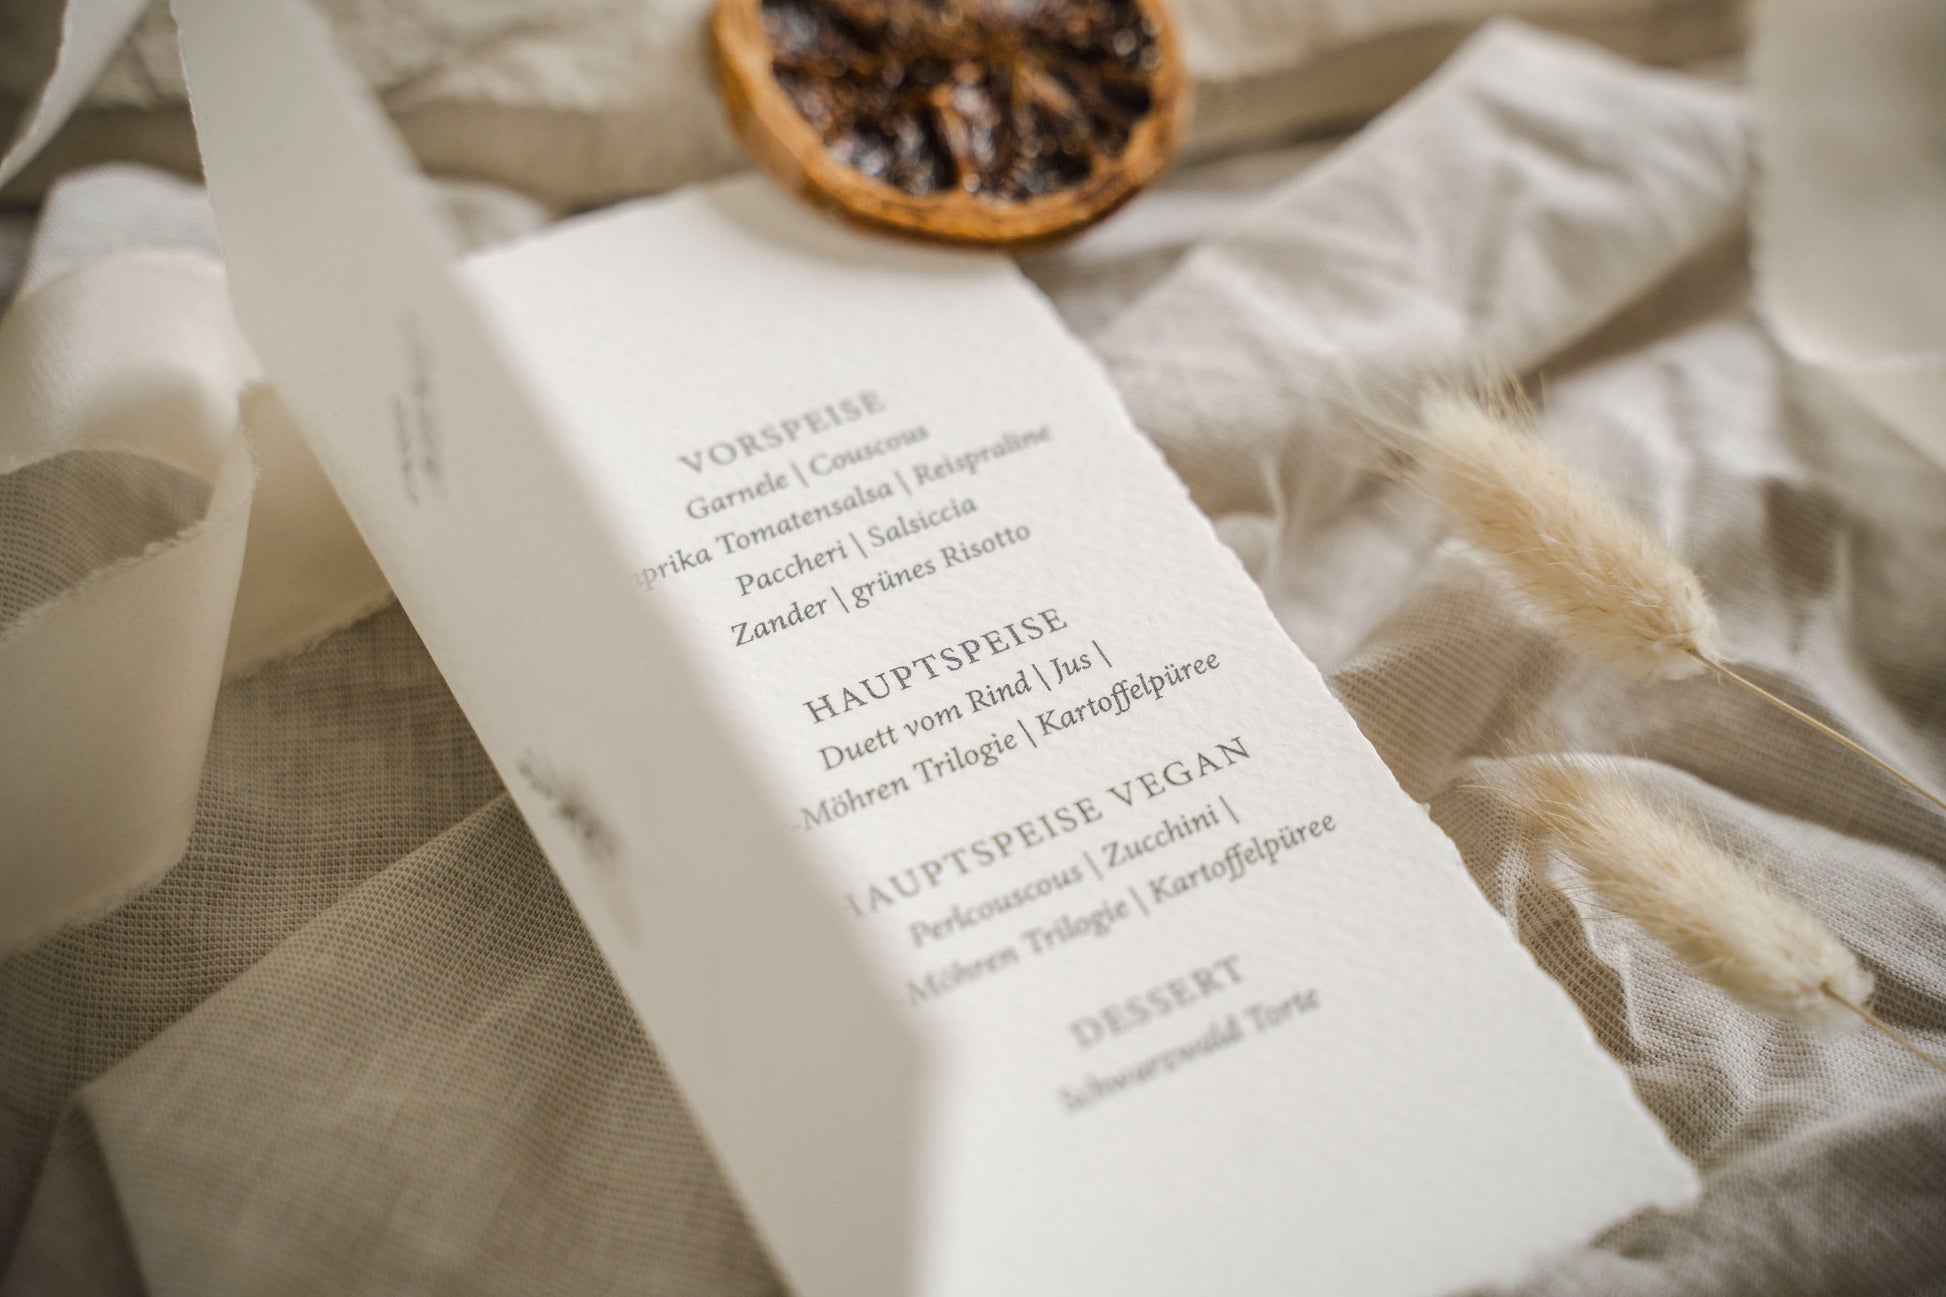 VORSPEISE
Garnele | Couscous
Paprika Tomatensalsa | Reispraline
Paccheri | Salsiccia
Zander | grünes Risotto
HAUPTSPEISE
Duett vom Rind | Jus |
Möhren Trilogie | Kartoffelpüree
HAUPTSPEISE VEGAN
Perlcouscous | Zucchini |
Möhren Trilogie | Kartoffelpüree
DESSERT
Schwarzwald Torte